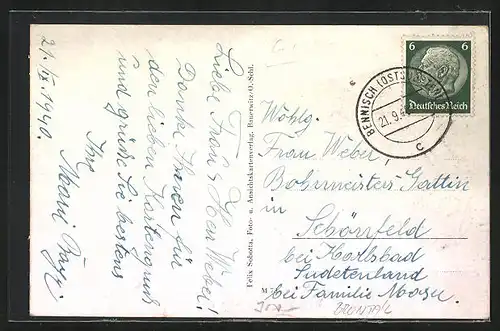 21./IX. 1940.
Liebe Frau & Herr Weber!
Danke Ihnen für
den lieben Kartengruß
und grüße Sie bestens
Ihr
Felix Sobotta, Foto- u. Ansichtskartenverlag, Bauerwitz/O. Schl.
M 7
6 6
Deutsches Reich
BENNISCH (OSTSUDETENL)
21.9.40
c
Wohlg.
Frau Weber
Bohrmeisters Gattin
in
Schönfeld
bei Karlsbad
Sudetenland
bei Familie Moser.